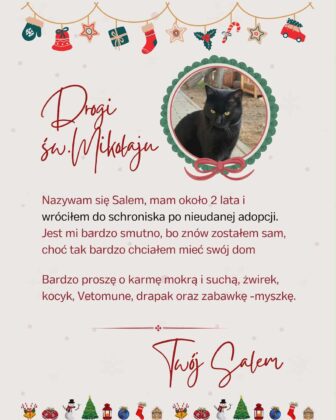 Drogi
św.Mikołaju
Nazywam się Salem, mam około 2 lata i
wróciłem do schroniska po nieudanej adopcji.
Jest mi bardzo smutno, bo znów zostałem sam,
choć tak bardzo chciałem mieć swój dom
Bardzo proszę o karmę mokrą i suchą, żwirek,
kocyk, Vetomune, drapak oraz zabawkę -myszkę.
Twój Salem